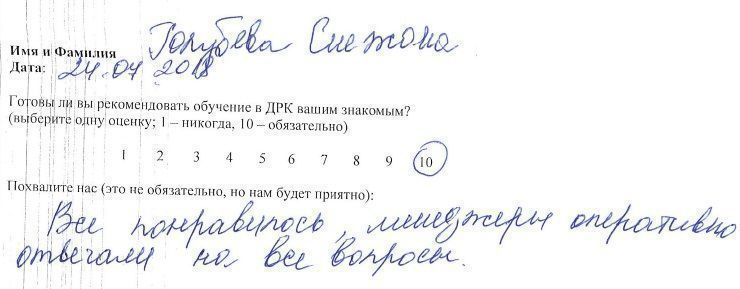 Имя и Фамилия Голубева Снежона
Дата: 24.07 2018
Готовы ли вы рекомендовать обучение в ДРК вашим знакомым?
(выберите одну оценку; 1 – никогда, 10 – обязательно)
1 2 3 4 5 6 7 8 9 10
Похвалите нас (это не обязательно, но нам будет приятно):
Все понравилось, менеджеры оперативно
отвечали на все вопросы.